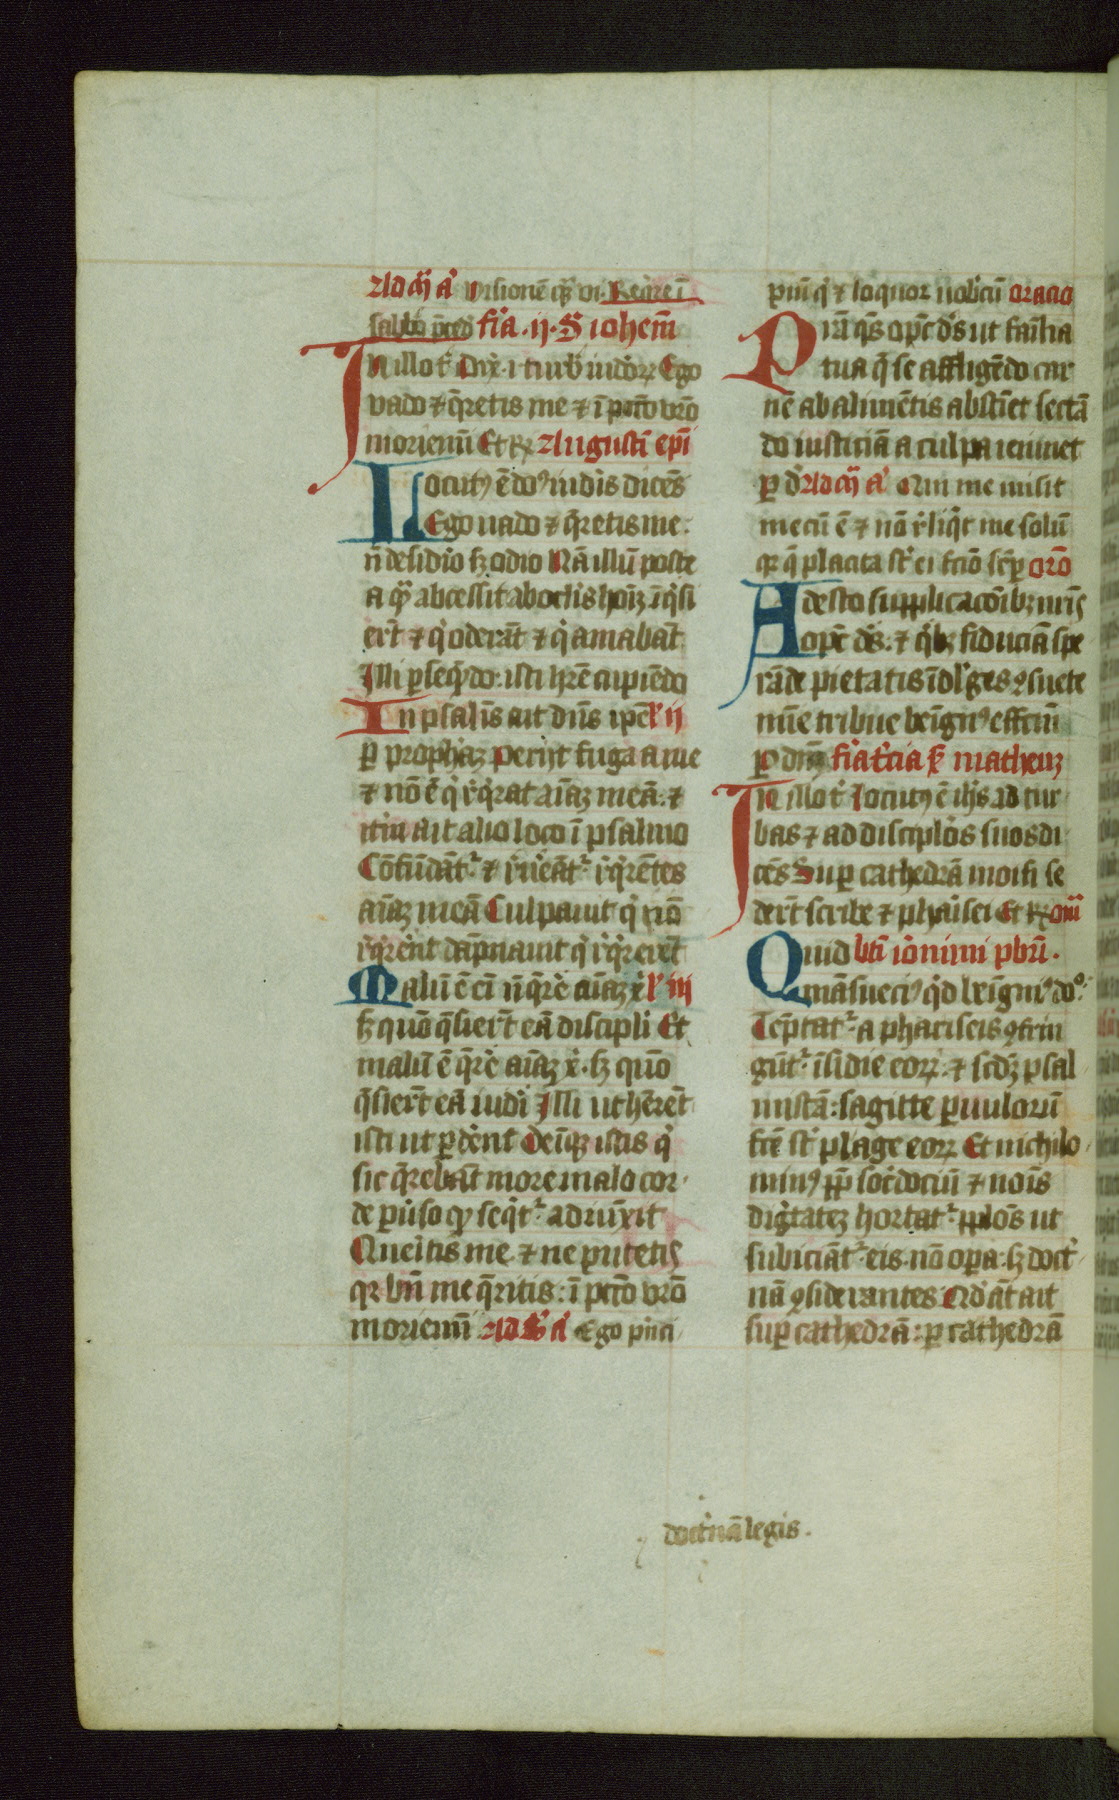 Ad m̄ a᷑ Visionē q̄ vi. Req̄re ī
sabbō p̄ced̄ fīa .ij. S iohem̄
In illo t̄ Dix̄ ih̄c turb̄ iudeoꝝ Ego
vado ⁊ q̄retis me ⁊ ī pctō vrō
moriemī Et rͣ Augustī epī
Locutꝰ ē dōꝰ iudīs dicēs
Ego uado ⁊ q̄retis me:
n̄ desid̓io sꝫ odio Nā illū poste
a q̄ꝫ abcessit ab oclīs hoīm īq̄si
ert̄ ⁊ qͥ oderāt ⁊ qͥ amabāt
Illi ꝑseq̄ndo: isti hr̄e cupiēdo
In psalmīs ait dn̄s ip̄e l ij
ꝑ prophāꝫ Perijt fuga a me
⁊ nō ē qͥ req̄rat aīaꝫ meā: ⁊
itm̄ ait alio loco ī psalmo
Cōfundāt᷑ ⁊ reueāt᷑ req̄rētes
aīaꝫ meā Culpauit qͥ nō
req̄rerēt dāpnauit qͥ req̄rerēt
Malū ē eī n̄ q̄rē aīaꝫ xͥ l iij
sꝫ quō q̄siert̄ eā discipli Et
malū ē q̄rē aīaꝫ xͥ. sꝫ quō
q̄siert̄ eā iudī Illi ut hērēt
isti ut ꝑdērent Deniqꝫ istis qͥ
sic q̄rebāt more malo cor-
de ꝑuso qͥ seqͥt᷑ adiūxit
Queritis me ⁊ ne putetis
qꝛ bn̄ me q̄ritis: ī pctō vrō
moriemī Ad b̄ a᷑ Ego pͥnci-
piū qͥ ⁊ loquor uobīcū oracio
Presta q̄s opc̄ ds̄ ut fam̄lia
tua q̄ se affligēdo car-
nē ab alimētis abstīet sectā
do iusticiā a culpa ieiunet
ꝑ d̄ Ad m̄ a᷑ Qui me misit
mecū ē ⁊ nō relīqͥt me solū
qꝛ q̄ placita st̄ ei facio sēꝑ orō
Adesto supplicacōibꝫ nrīs
opc̄ ds̄. ⁊ qͥbꝫ fiduciā spe-
rāde pietatis īdulges ꝯsuete
mīe tribue benīgnꝰ effcm̄
P dn̄m fīa t̄cia ẜ matheuꝫ
In illo t̄ Locutꝰ ē ihs̄ ad tur-
bas ⁊ ad disciplōs suos di-
cēs Suꝑ cathedrā moisi se-
dert̄ scribe ⁊ pharisei Et rͣ om̄
Quid btī ieronimi pbrī.
māsueciꝰ qͥd benīgniꝰ dōꝰ
Tēptat᷑ a phariseis ꝯfrin-
gūt᷑ īsidie eoꝝ. ⁊ scd̄ꝫ psal-
mistā: sagitte ꝑuuloꝝ
fc̄e st̄ plage eoꝝ Et nichilo-
minꝰ ꝓp̄ sacerdociū ⁊ noīs
digtatē hortat᷑ pplōs ut
subiciāt᷑ eis. nō oꝑa: sꝫ doct̓-
nā ꝯsiderantes Qd̄ āt ait
suꝑ cathedrā: ꝑ cathedrā
doctͥnā legis.